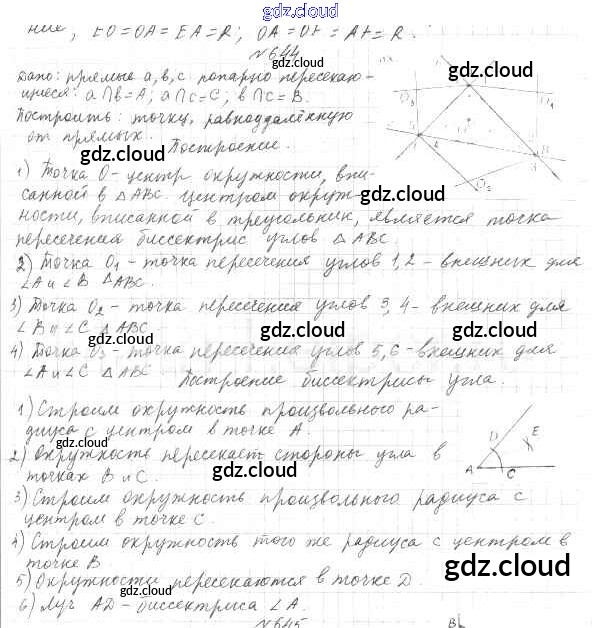 gdz.cloud
них, EO=OA=EA=R; OA=OF=AF=R.
№644
gdz.cloud
gdz.cloud
Дано: прямые a, b, c попарно пересекаю-
щиеся: a∩b=A; a∩c=C; b∩c=B.
Построить: точку, равноудалённую
от прямых.
gdz.cloud
Построение.
gdz.cloud
1) Точка O-центр окружности, впи-
санной в △ABC. Центром окруж-
gdz.cloud
ности, вписанной в треугольник, является точка
пересечения биссектрис углов △ABC.
2) Точка O₁ - точка пересечения углов 1,2 - внешних для
∠A и ∠B △ABC.
gdz.cloud
3) Точка O₂ - точка пересечения углов 3,4 - внешних для
∠B и ∠C △ABC.
gdz.cloud
gdz.cloud
gdz.cloud
4) Точка O₃ - точка пересечения углов 5,6 - внешних для
∠A и ∠C △ABC
Построение биссектрисы угла.
1) Строим окружность произвольного ра-
диуса с центром в точке A.
gdz.cloud
2) Окружность пересекает стороны угла в
точках B и C.
gdz.cloud
D
E
A
C
3) Строим окружность произвольного радиуса с
центром в точке C.
4) Строим окружность того же радиуса с центром в
точке B
gdz.cloud
5) Окружности пересекаются в точке D.
gdz.cloud
6) Луч AD - биссектриса ∠A.
№645
gdz.cloud
B